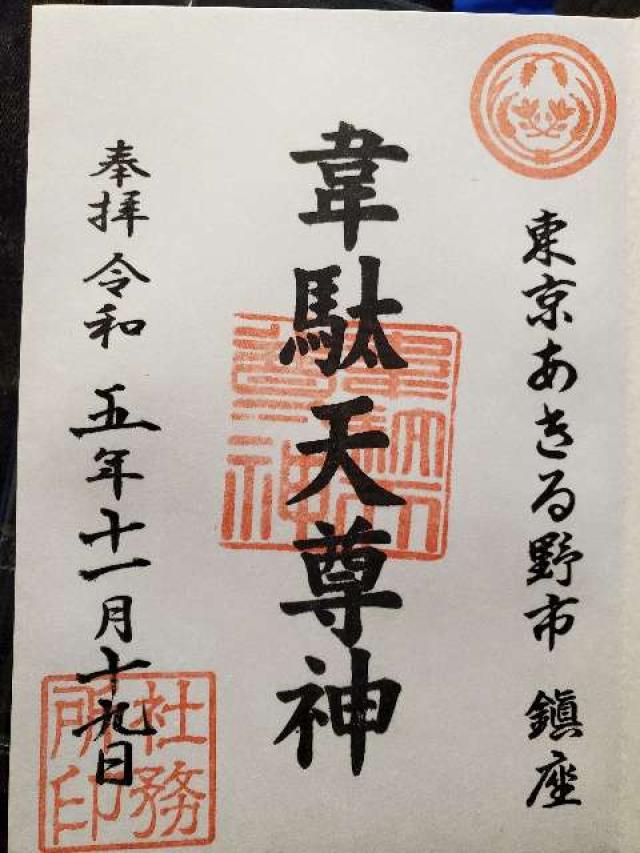 東京あきる野市 鎮座
韋駄天尊神
奉拝 令和 五年十一月十九日
社務所印